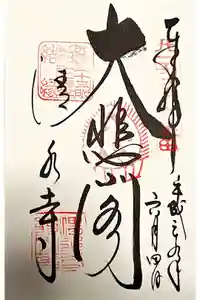 奉拝
平成三〇年
六月四日
大悲閣
清水寺